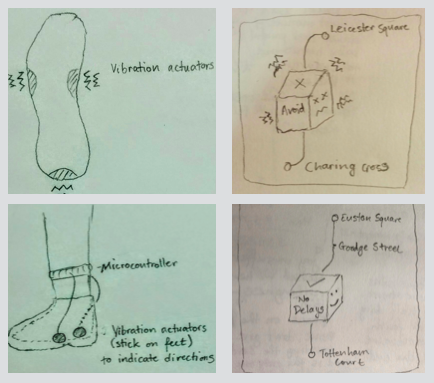 Vibration actuators
Leicester Square
X
Avoid
Charing Cross
Microcontroller
Vibration actuators
(stick on feet)
to indicate directions
Euston Square
Goodge Street
No
Delays
Tottenham
Court